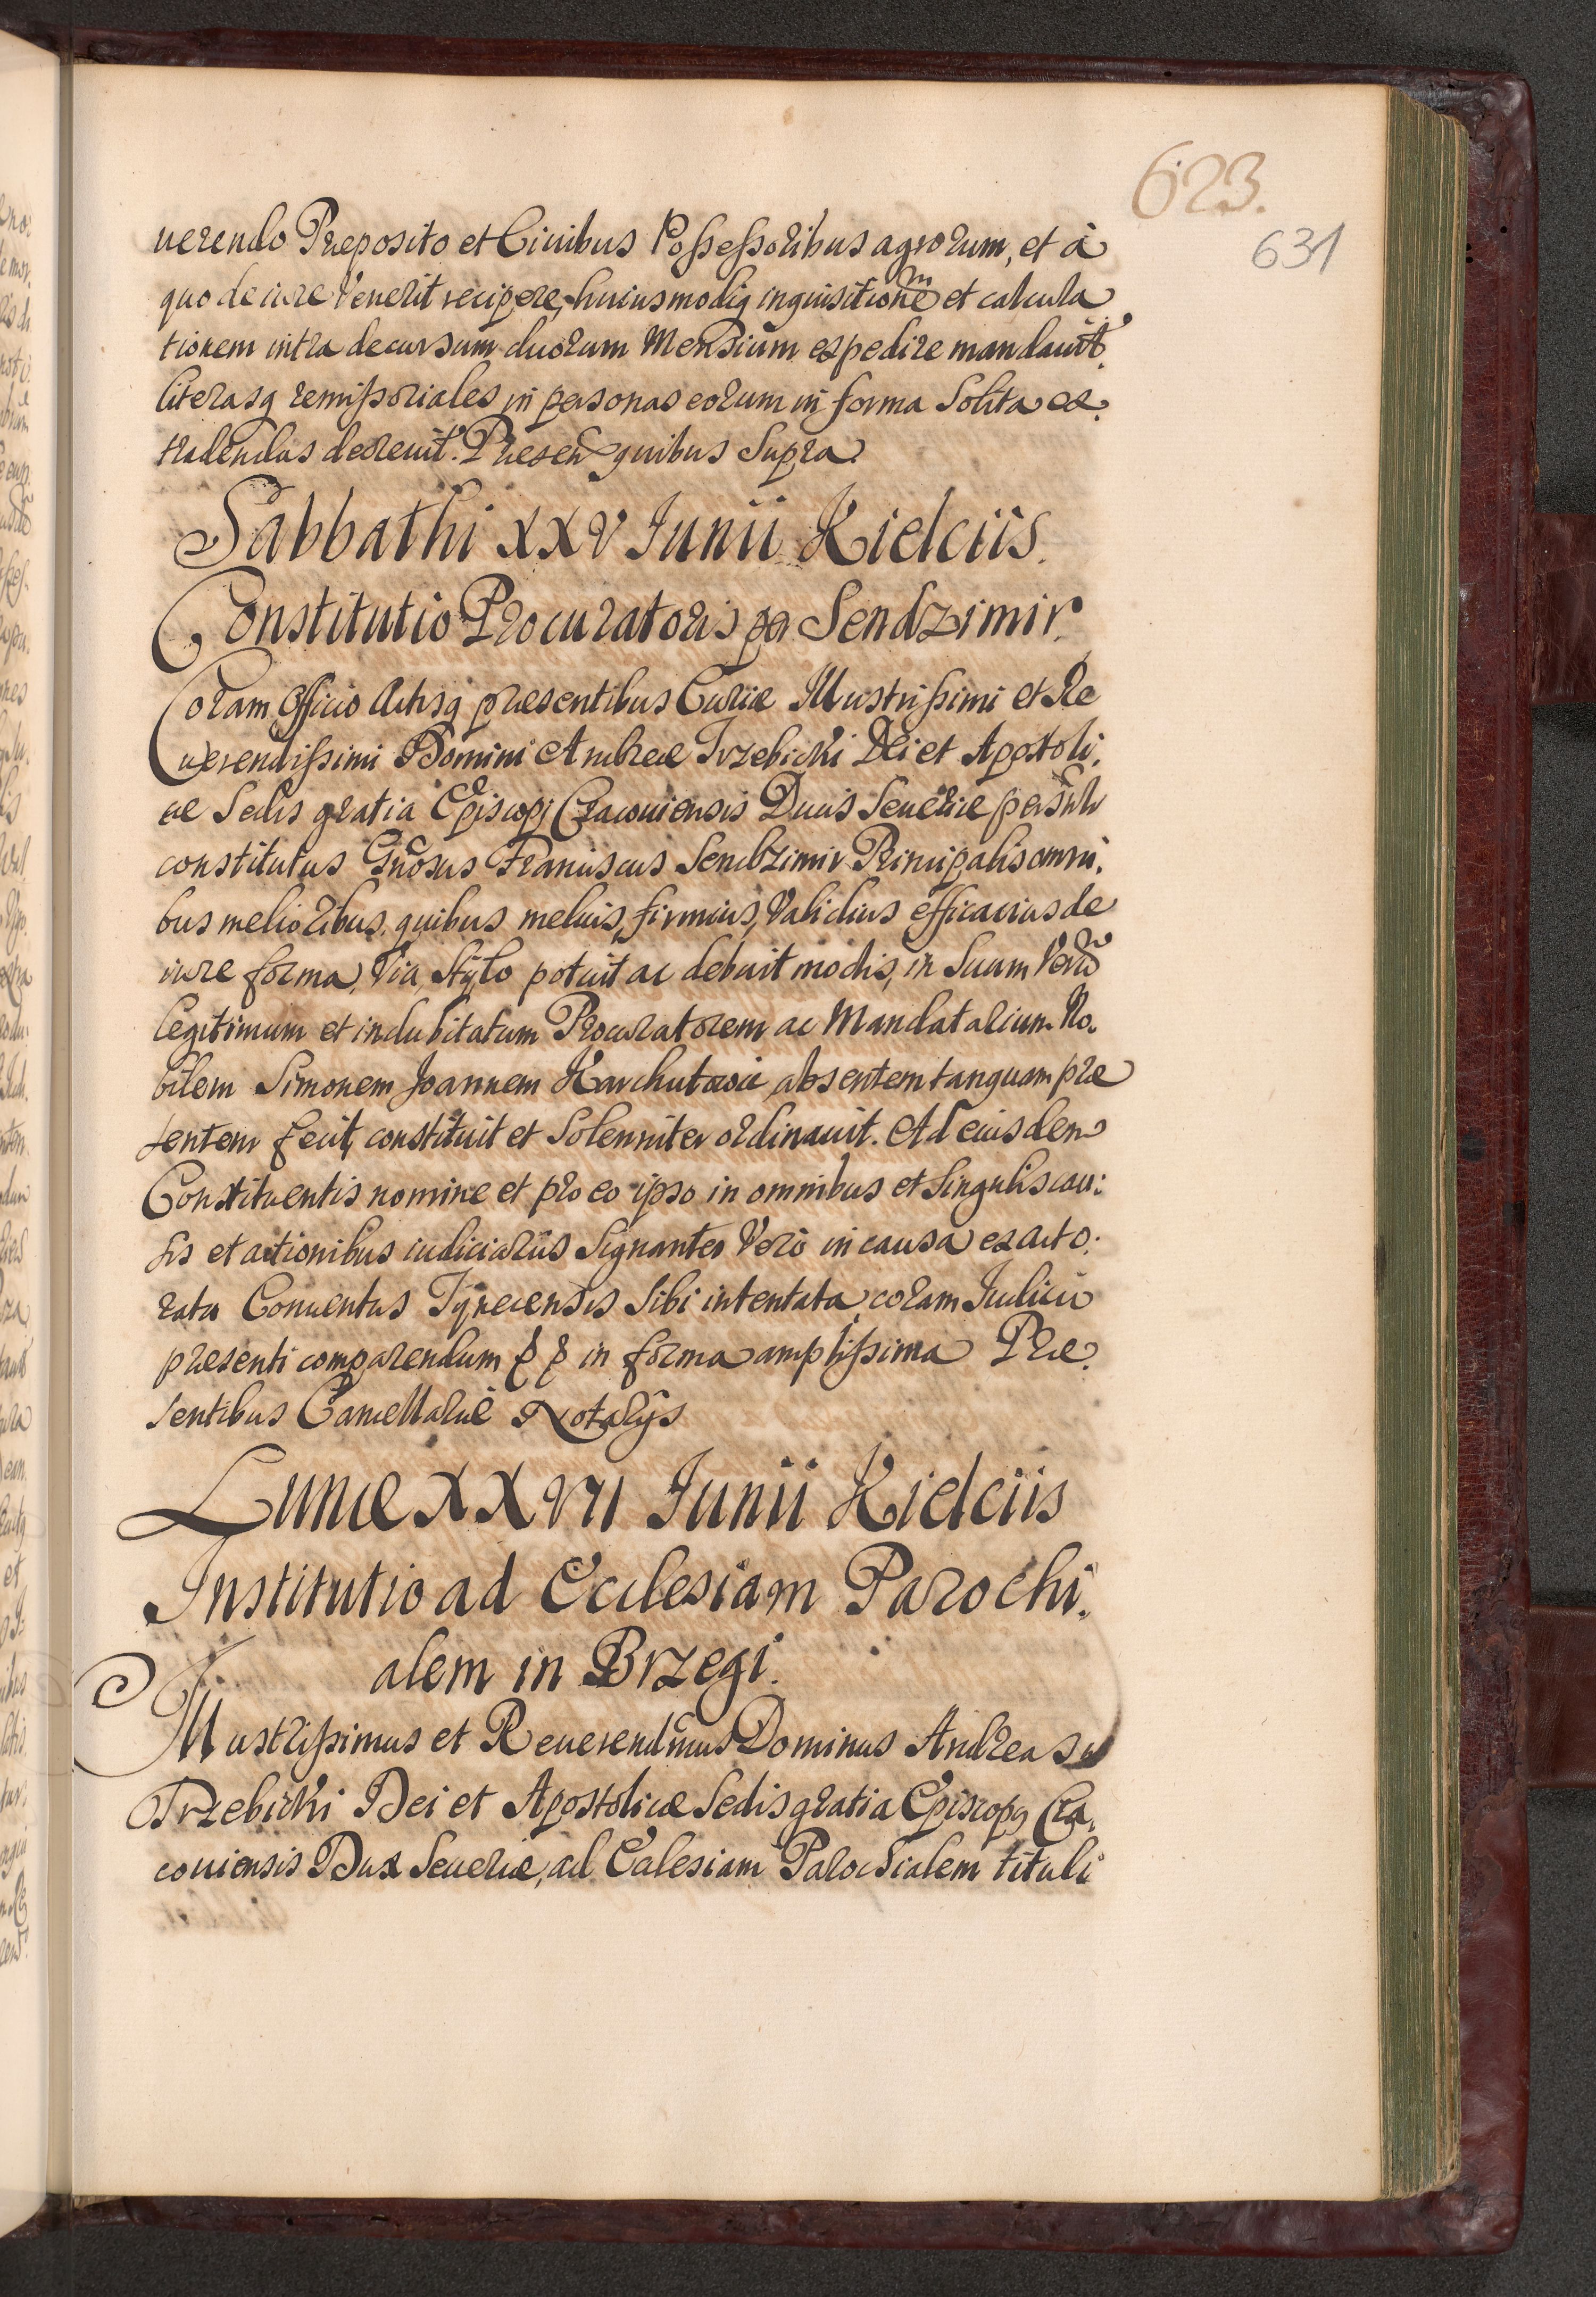 623.
631
uerendo Præposito et Ciuibus Possessoribus agrorum, et à
quo de iure Venerit recipere, huiusmodiq inquisitionem et calcula
tionem intra decursum duorum Mensium expedire mandauit.
literasq remissoriales in personas eorum in forma Solita ex.
tradendas decreuit. Præsen quibus Supra.
Sabbathi XXV Iunii Kielciis.
Constitutio Procuratoris per Sendzimir.
Coram Officio Actisq præsentibus Curiæ Illustrissimi et Re
uerendissimi Domini Andreæ Trzebicki Dei et Apostoli.
cæ Sedis gratia Episcopi Cracouiensis Ducis Seueriæ personlr
constitutus Gnosus Franciscus Sendzimir Principalis omni.
bus melioribus, quibus melius, firmius, Validius efficacius de
iure forma, Via, Stylo potuit ac debuit modis, in Suum Verū
Legitimum et indubitatum Procuratorem ac Mandatarium No.
bilem Simonem Joannem Karchutowic absentem tanquam præ
sentem fecit, constituit et Solenniter ordinauit. Ad eiusdem
Constituentis nomine et pro eo ipso in omnibus et Singulis cau:
sis et actionibus iudiciariis Signanter Verò in causa ex acto:
ratu Conuentus Tynecensis Sibi intentata, coram Iudicio
præsenti comparendum in forma amplissima Præ.
sentibus Cancellariæ Notarijs
Lunæ XXVII Iunii Kielciis
Institutio ad Ecclesiam Parochi.
alem in Brzegi.
Illustrissimus et Reuerendmus Dominus Andreas
Trzebicki Dei et Apostolicæ Sedis gratia Episcopq Cra.
couiensis Dux Seueriæ, ad Ecclesiam Parochialem tituli